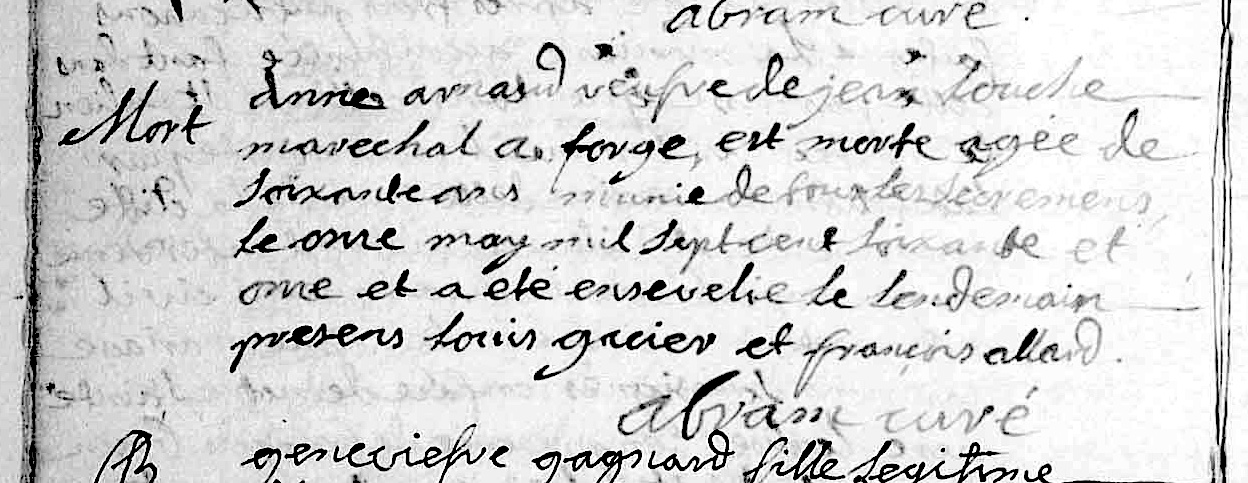 abram curé .
Mort
anne arnaud veufve de jean Louche
marechal a forge, est morte agée de
soixante ans munie de tous les sacremens,
le onze may mil sept cent soixante et
onze et a eté ensevelie le lendemain
presens louis gacier et françois allard.
abram curé
B
geneviefve gagnard fille legitime